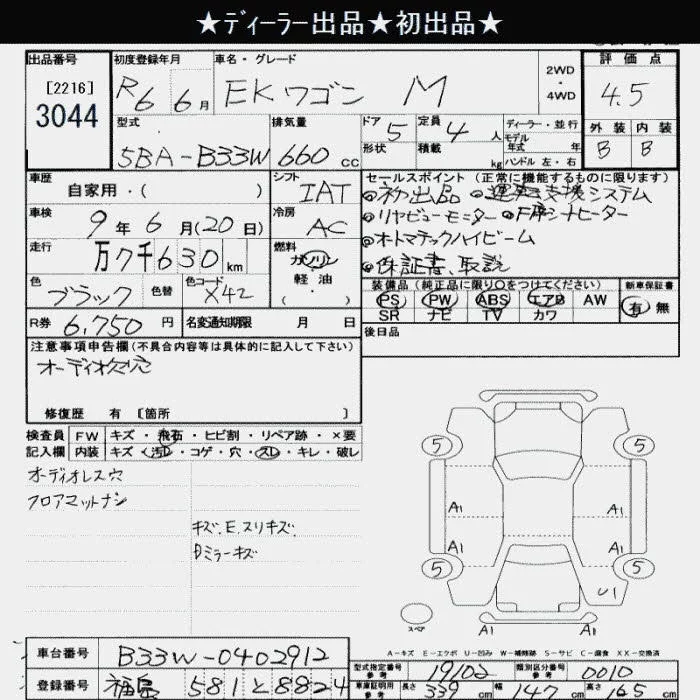 ★ディーラー出品★初出品★
出品番号
[2216]
3044
初度登録年月
R6 6月
車名・グレード
EKワゴン M
2WD
・
4WD
評価点
4.5
外装 内装
B B
型式
5BA-B33W
排気量
660 cc
ドア 5
形状
定員 4 人
積載 kg
ディーラー・並行
モデル
年式 年
ハンドル 左・右
車歴
自家用・( )
シフト
IAT
車検
9年6月(20日)
冷房
AC
走行
万7千630km
燃料
ガソリン
軽油
( )
色
ブラック
色替
色コード
X42
R券 6,750円
名変通知期限 月 日
セールスポイント (正常に機能するものに限ります)
◎初出品 ◎運転支援システム
◎リヤビューモニター ◎F席シートヒーター
◎オートマチックハイビーム
◎保証書、取説
装備品(純正品に限り○をつけてください)
PS PW ABS エアB AW
SR ナビ TV カワ
新車保証書
有 無
後日品
注意事項申告欄(不具合内容等は具体的に記入して下さい)
オーディオ欠穴
修復歴 有 [箇所 ]
検査員
記入欄
FW キズ・飛石・ヒビ割・リペア跡・×要
内装 キズ・汚レ・コゲ・穴・スレ・キレ・破レ
オーディオレス穴
フロアマットナシ
キズ、E、スリキズ、
Dミラーキズ
5 5
A1 A1
A1 A1
5 5
U1
スペア
A1 A1
A-キズ E-エクボ U-凹み W-補修跡 S-サビ C-腐食 XX-交換済
車台番号 B33W-0402912
登録番号 福島 581 と 8824
型式指定番号
参考
19102
類別区分番号
参考
0010
車庫証明用
参考
長さ 339 cm 幅 147 cm 高さ 165 cm